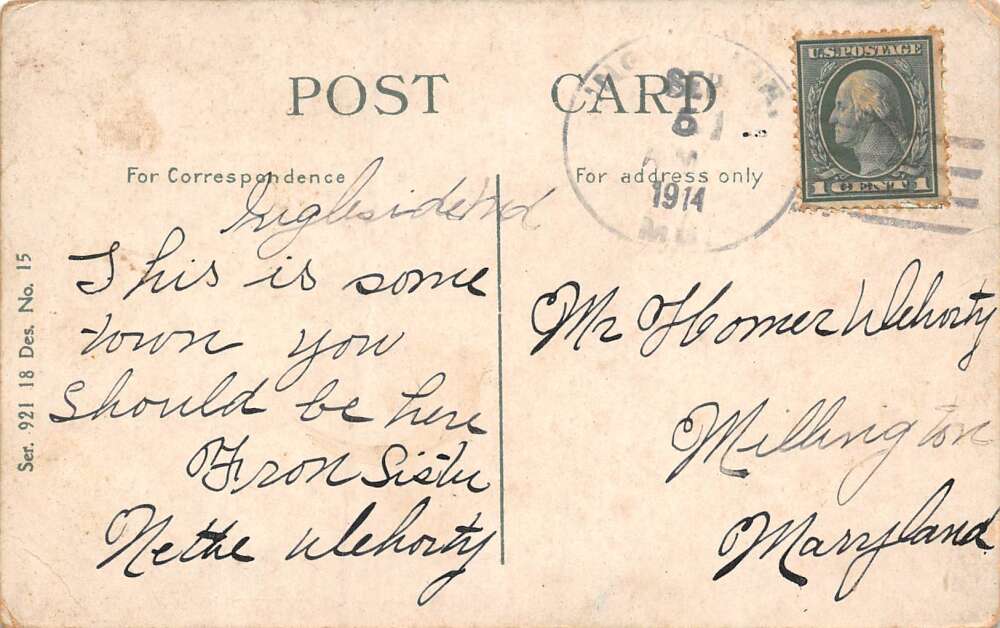 POST CARD
U.S. POSTAGE
1 CENT 1
SEP
6
1914
MD.
For Correspondence
For address only
Ingleside Md
This is some
town you
should be here
From Sister
Nettie Wehorty
Mr Homer Wehorty
Millington
Maryland
Ser. 921 18 Des. No. 15